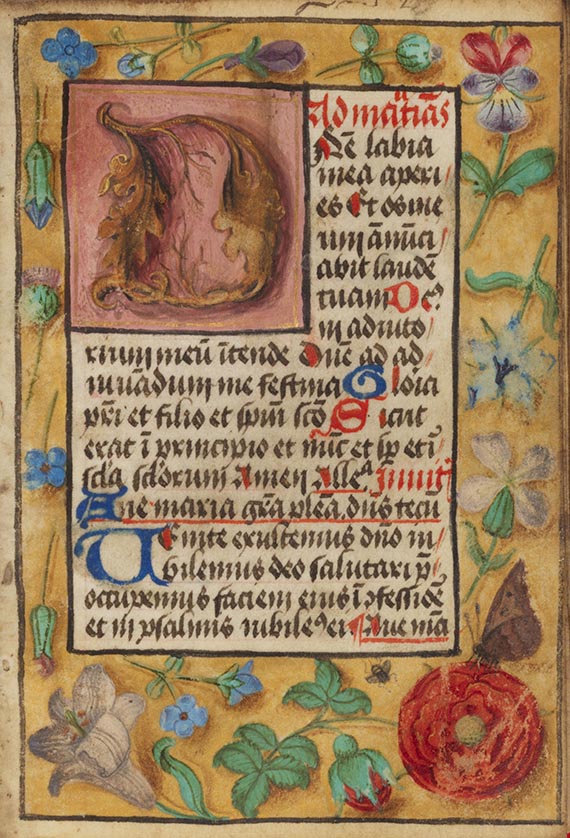 Ad mat̄ias
Dn̄e labia
mea aperi
es Et os me
um ān̄ūci
abit laudē
tuam De⁹
in aduto
rium meū ītende Dn̄e ad ad
iuuādum me festina Gloria
pr̄i et filio et sp̄ui sc̄o Sicut
erat ī principio et nūc et sp̄ et ī
scl̄a scl̄orum Amen Alleᵃ Inuit
Aue maria gr̄a plēa dn̄s tecū
Uenite exultemus dn̄o iu
bilemus deo salutari
occupemus faciem eius ī ꝯfessiōe
et in psalmis iubile⁹ ei Aue mᵃ